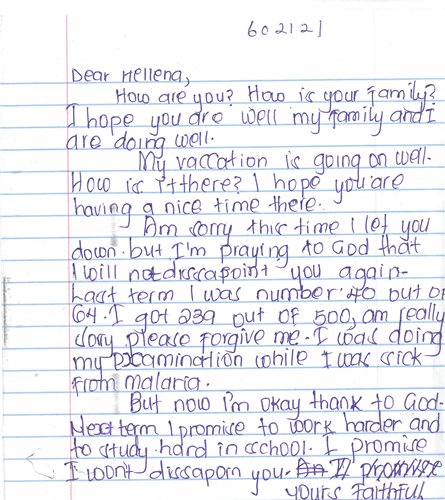 602121
Dear Hellena,
How are you? How is your family?
I hope you are well my family and I
are doing well.
My vaccation is going on well.
How is it there? I hope you are
having a nice time there.
Am sorry this time I let you
down. but I'm praying to God that
I will not dissapoint you again-
Last term I was number 40 out of
64. I got 239 out of 500, am really
sory please forgive me. I was doing
my Examination while I was sick
from malaria.
But now i'm okay thank to God.
Next term I promise to work harder and
to study hard in school. I promise
I wont dissapoin you. I promise
yours faithful